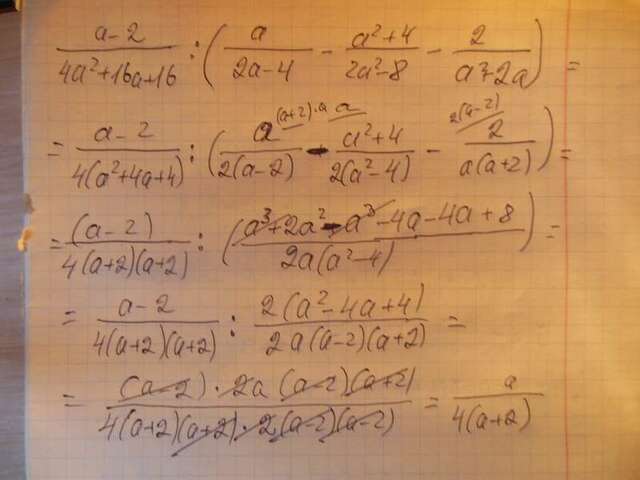 (a-2)/(4a²+16a+16) : (a/(2a-4) - (a²+4)/(2a²-8) - 2/(a²+2a)) =
= (a-2)/(4(a²+4a+4)) : (a^{(a+2)·a}/(2(a-2)) - (a²+4)^{a}/(2(a²-4)) - 2^{2(a-2)}/(a(a+2))) =
= (a-2)/(4(a+2)(a+2)) : ((a³+2a²-a³-4a-4a+8)/(2a(a²-4))) =
= (a-2)/(4(a+2)(a+2)) : (2(a²-4a+4))/(2a(a-2)(a+2)) =
= ((a-2)·2a(a-2)(a+2))/(4(a+2)(a+2)·2(a-2)(a-2)) = a/(4(a+2))